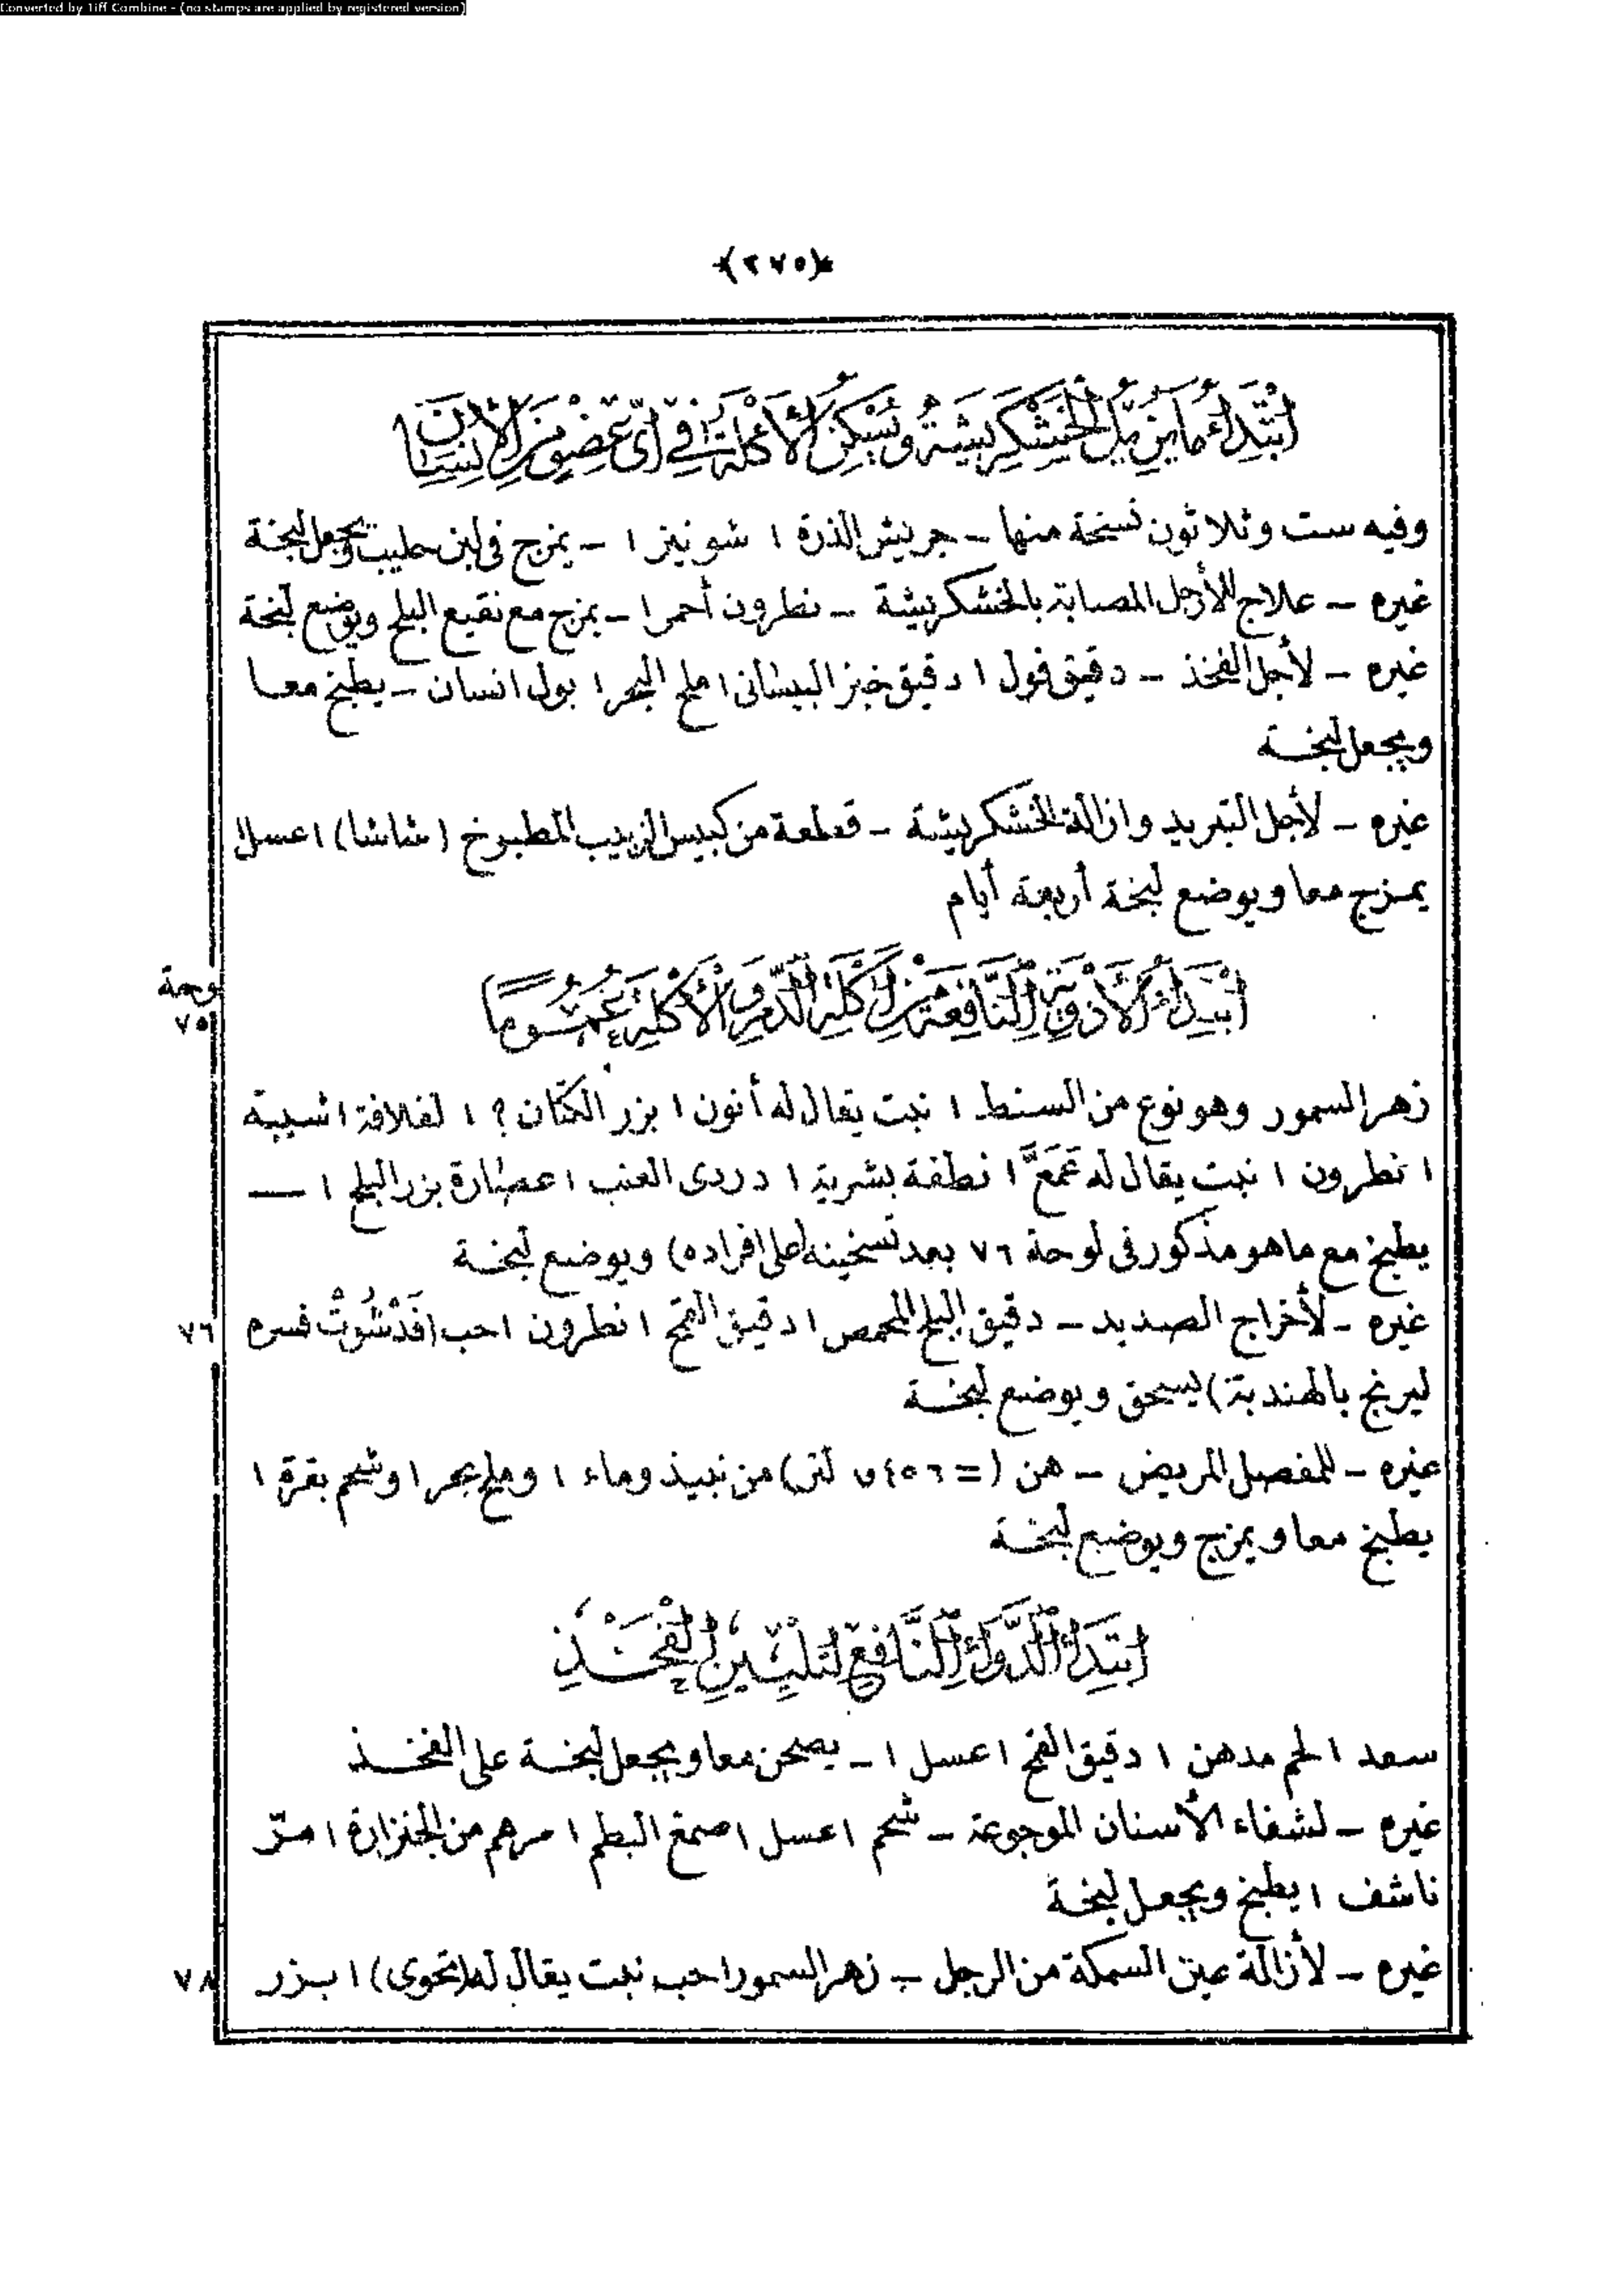 Converted by Tiff Combine - (no stamps are applied by registered version)
﴿٢٧٥﴾
اِبْتِدَاءُ مَا يُزِيلُ الخَشْكَرِيشَةَ وَيُسَكِّنُ الأَكَلَانَ فِي أَيِّ عُضْوٍ مِنَ الإِنْسَانِ
وفيه ست وثلاثون نسخة منها – جريش الذرة ١ شونيز ١ – يمزج فى لبن حليب ويجعل لبخة
غيره – علاج للأرجل المصابة بالخشكريشة – نطرون أحمر ١ – يمزج مع نقيع البلح ويوضع لبخة
غيره – لأجل الفخذ – دقيق فول ١ دقيق خبز البيسانى ١ ملح البحر ١ بول انسان – يطبخ معا
ويجعل لبخة
غيره – لأجل التبريد وازالة الخشكريشة – قطعة من كبيس الزبيب المطبوخ (شاشا) ١ عسل ١
يمزج معا ويوضع لبخة أربعة أيام
اِبْتِدَاءُ الأَدْوِيَةِ النَّافِعَةِ مِنْ أَكَلَةِ الدَّمِ وَالأَكَلَةِ عُمُومًا
لوحة
٧٥
زهر السمور وهو نوع من السنط ١ نبت يقال له أنون ١ بزر الكتان ؟ ١ لفلافة ١ شبيبة
١ نطرون ١ نبت يقال له عَمَعَ ١ نطفة بشرية ١ دردى العنب ١ عصارة بزر البلح ١ —
يطبخ مع ما هو مذكور فى لوحة ٧٦ بعد تسخينه (على افراده) ويوضع لبخة
غيره – لأخراج الصديد – دقيق البلح المحمص ١ دقيق القمح ١ نطرون ١ حب (فَدْشُوتْ فسره
٧٦
ليرنج بالهندبة) يسحق ويوضع لبخة
غيره – للمفصل المريض – هن (= ٤٥٦ر٠ لتر) من نبيذ وماء ١ وملح بحر ١ وشحم بقرة ١
يطبخ معا ويمزج ويوضع لبخة
اِبْتِدَاءُ الدَّوَاءِ النَّافِعِ لِتَلْيِينِ الفَخِذِ
سعد ١ لحم مدهن ١ دقيق القمح ١ عسل ١ – يصحن معا ويجعل لبخة على الفخذ
غيره – لشفاء الأسنان الموجوعة – شحم ١ عسل ١ صمغ البطم ١ مرهم من الجنزارة ١ مرّ
ناشف ١ يطبخ ويجعل لبخة
غيره – لأزالة عين السمكة من الرجل – زهر السمور ١ حب نبت يقال له (تحوى) ١ بزر
٧٨